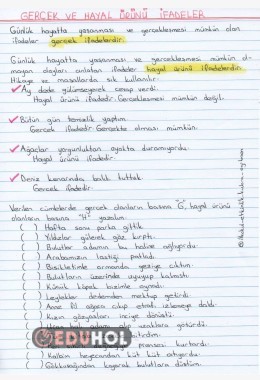 GERÇEK VE HAYAL ÜRÜNÜ İFADELER
Günlük hayatta yaşanması ve gerçekleşmesi mümkün olan
ifadeler gerçek ifadelerdir.
Günlük hayatta yaşanması ve gerçekleşmesi mümkün ol-
mayan olayları anlatan ifadeler hayal ürünü ifadelerdir.
Hikaye ve masallarda sık kullanılır.
Ay dede gülümseyerek cevap verdi.
Hayal ürünü ifadedir. Gerçekleşmesi mümkün değil.
Bütün gün temizlik yaptım.
Gerçek ifadedir. Gerçekte olması mümkün.
Ağaçlar yorgunluktan ayakta duramıyordu.
Hayal ürünü ifadedir.
Deniz kenarında balık tuttuk.
Gerçek ifadedir.
Verilen cümlelerde gerçek olanların başına "G", hayal ürünü
olanların başına "H" yazalım.
( ) Hafta sonu parka gittik.
( ) Yıldızlar gülerek göz kırptı.
( ) Bulutlar adamın bu haline ağlıyordu.
( ) Arabamızın lastiği patladı.
( ) Bisikletimle ormanda geziye çıktım.
( ) Bulutların üzerinde uyuyup kalmıştı.
( ) Küçük köpek bizimle oynadı.
( ) Leylekler dedemden mektup getirdi.
( ) Anne fil ağaca çıkıp etrafı izlemeye daldı.
( ) Kızın gözyaşları inciye dönüştü.
( ) alıp uzaklara götürdü.
EDUHOL
( ) prensesi kurtardı.
( ) Kalbim heyecandan küt küt atıyordu.
( ) Gökkuşağından kayarak bulutlara düştüm.